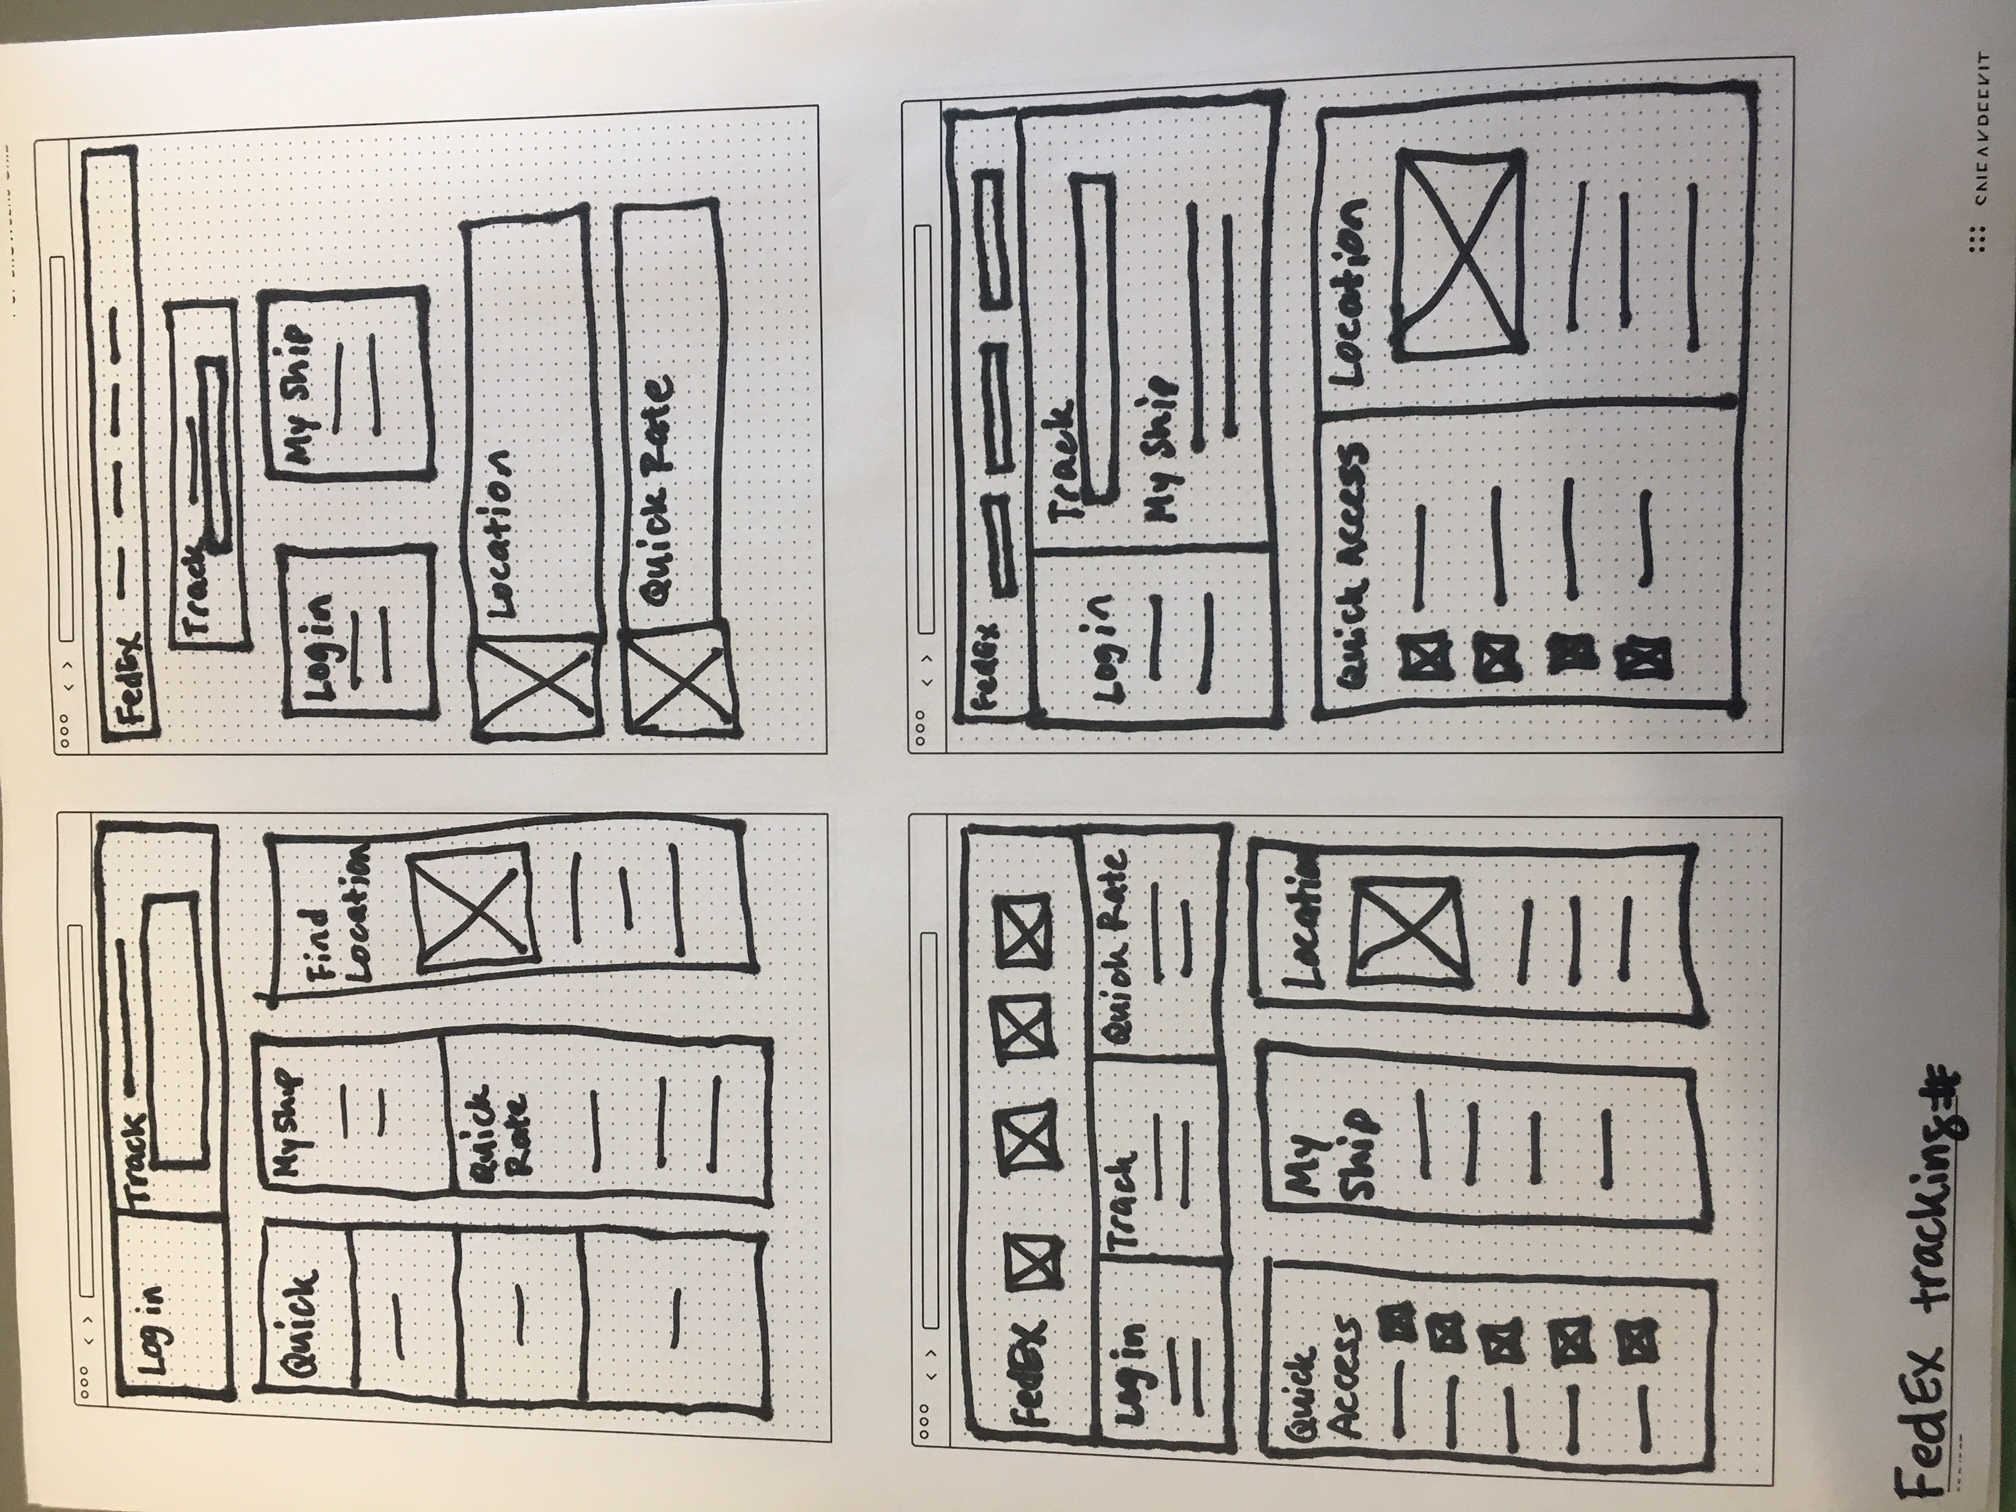 Log in
Track
Quick
My Ship
Quick
Rate
Find
Location
FedEx
Track
Login
My Ship
Location
Quick Rate
FedEx
Log in
Track
Quick Rate
Quick
Access
My
Ship
Location
FedEx
Log in
Track
My Ship
Quick Access
Location
FedEx tracking#
SNEAKPEEKIT